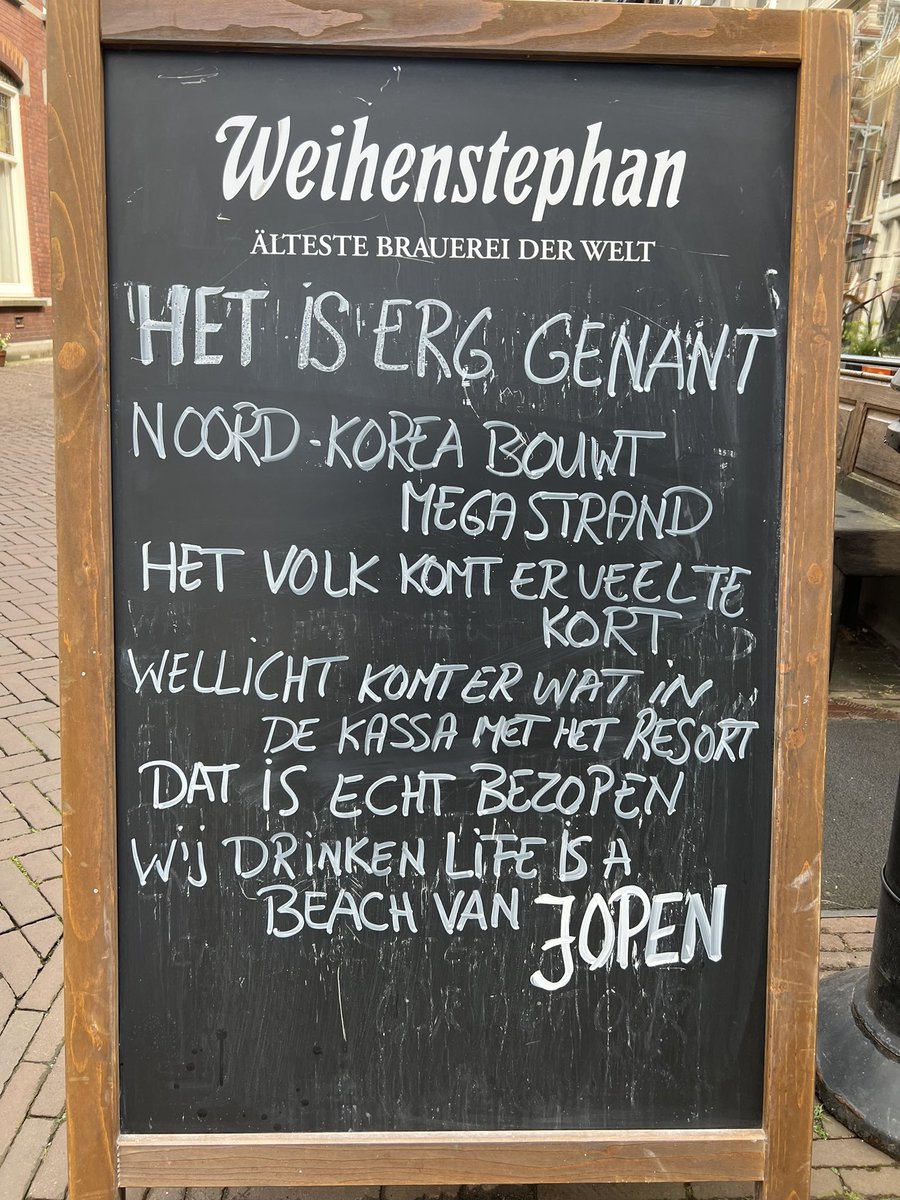 Weihenstephan
ÄLTESTE BRAUEREI DER WELT
HET IS ERG GENANT
NOORD-KOREA BOUWT
MEGASTRAND
HET VOLK KOMT ER VEEL TE
KORT
WELLICHT KOMT ER WAT IN
DE KASSA MET HET RESORT
DAT IS ECHT BEZOPEN
WIJ DRINKEN LIFE IS A
BEACH VAN JOPEN